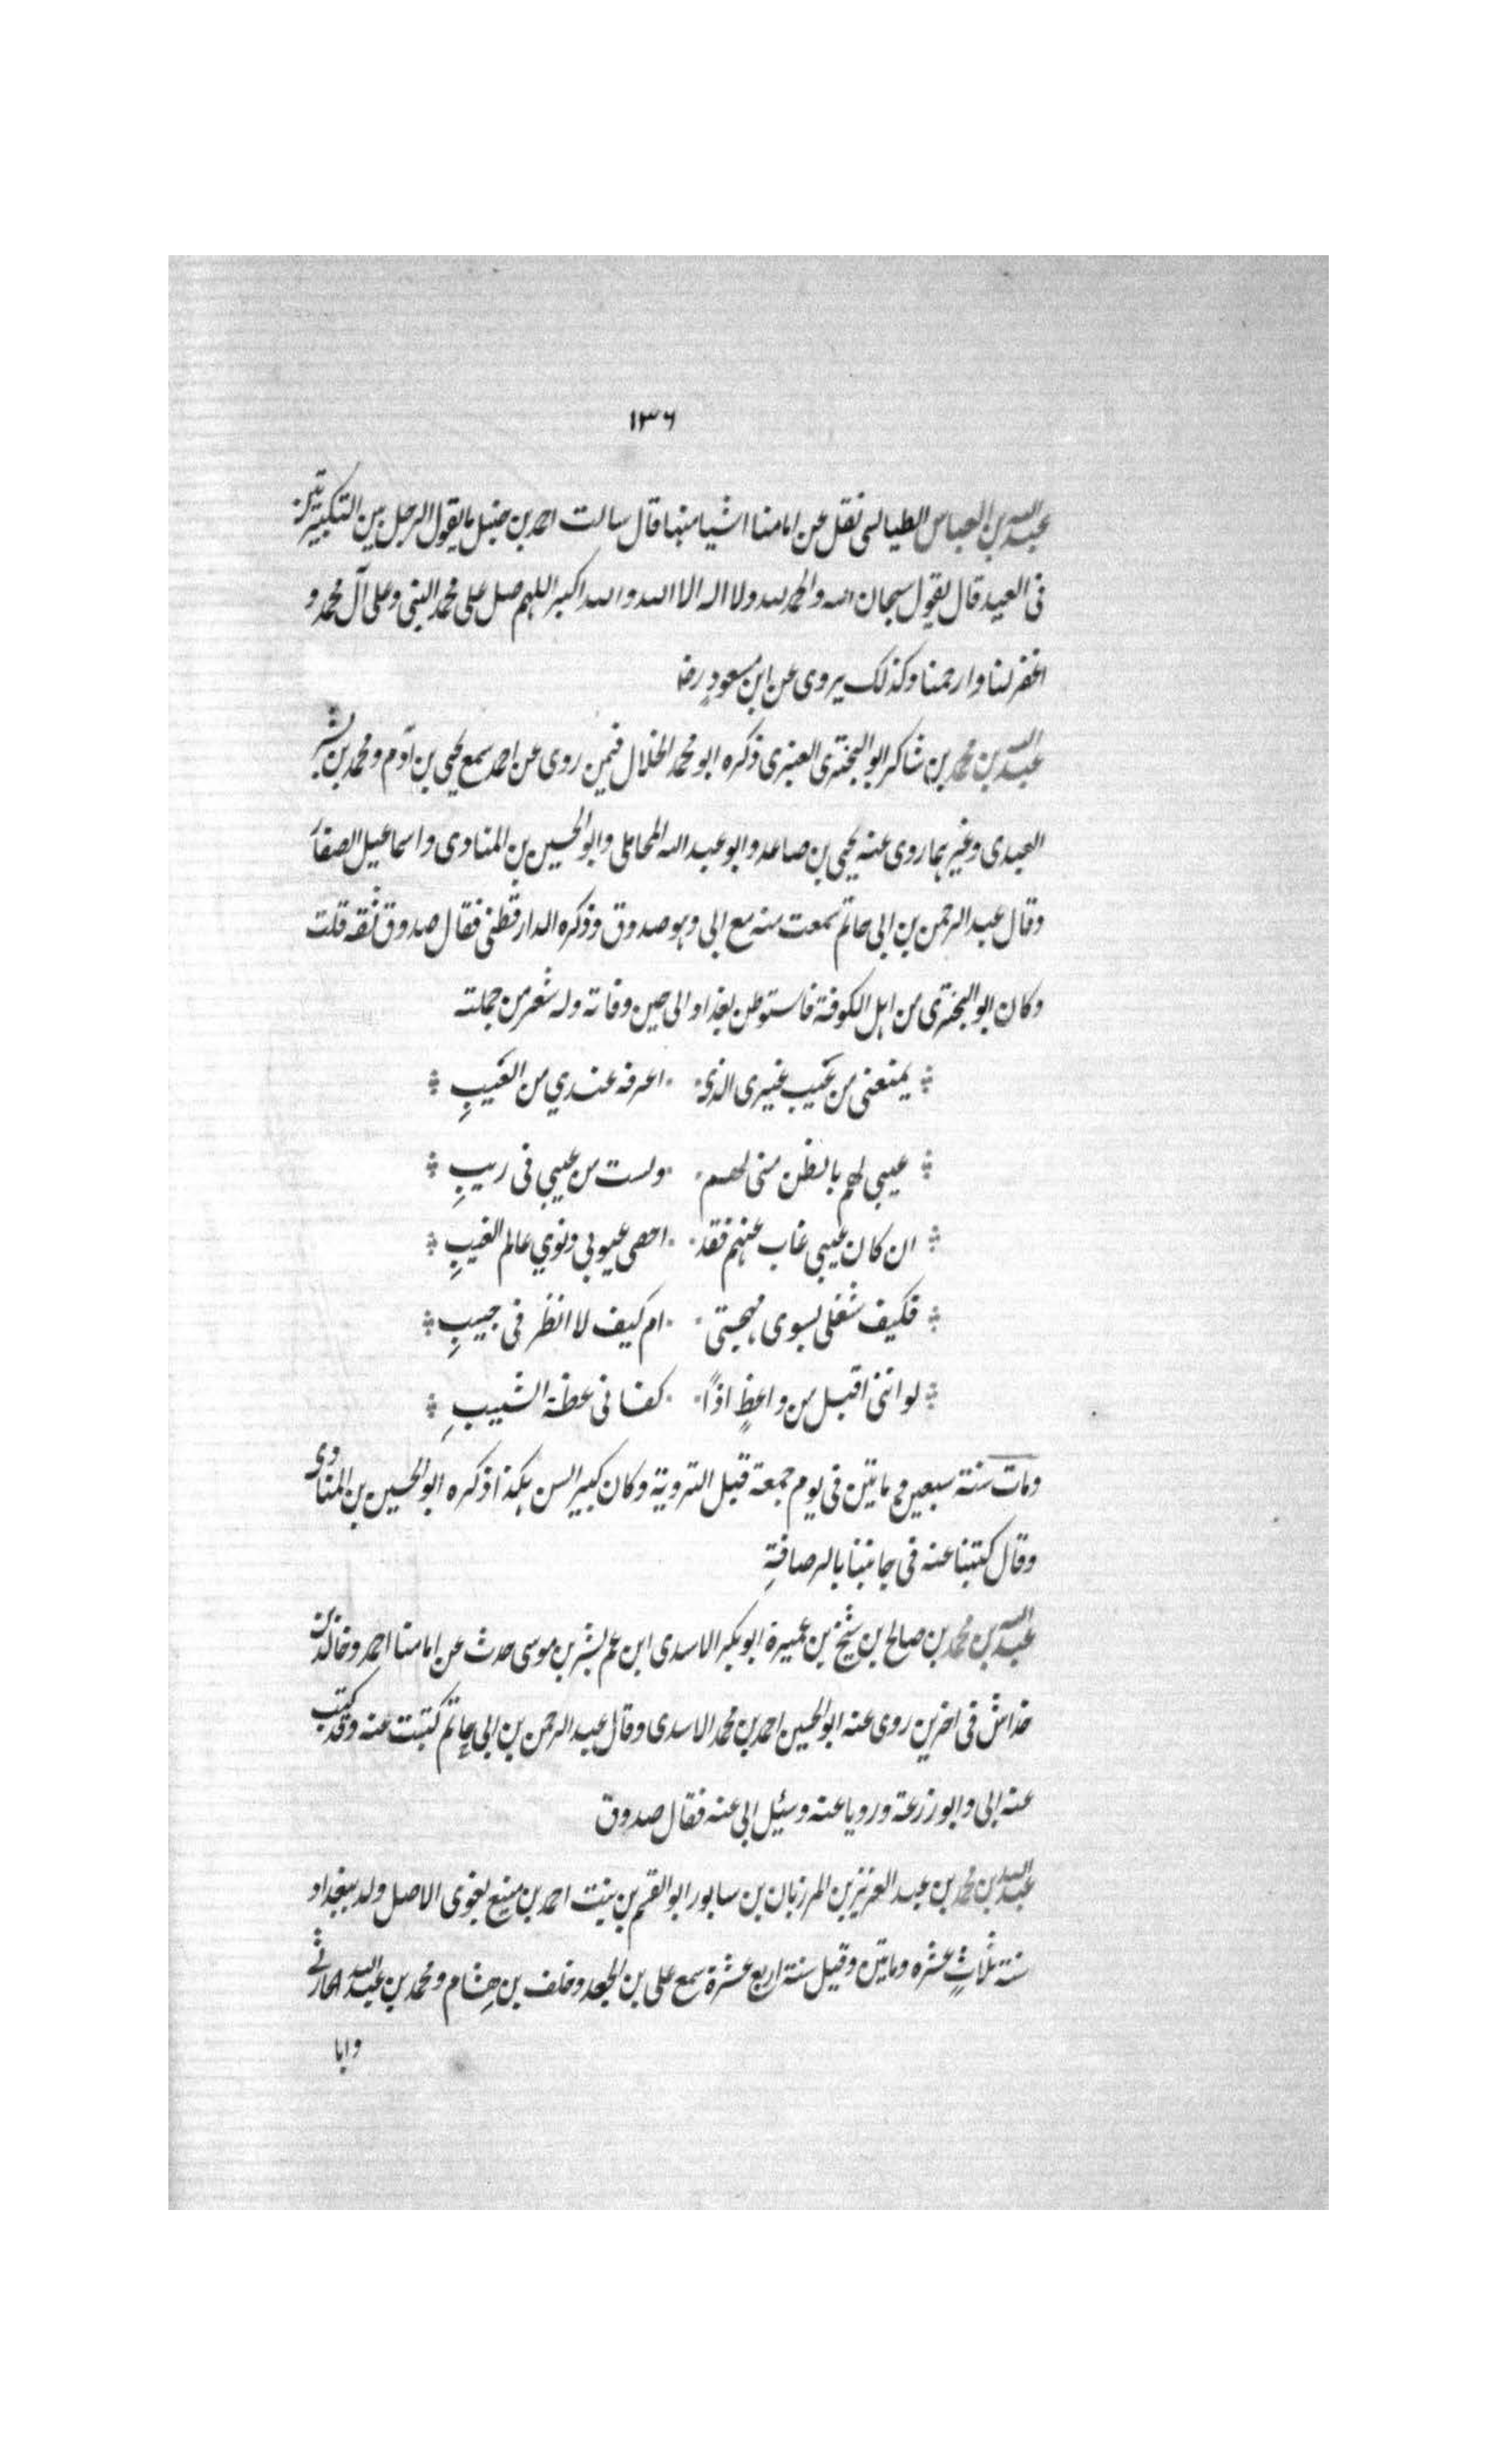 ١٣٦
عبد الله بن العباس الطيالسى نقل عن امامنا اشيا منها قال سالت احمد بن حنبل ما يقول الرجل بين التكبيرتين
فى العيد قال يقول سبحان الله والحمد لله ولا اله الا الله والله اكبر اللهم صل على محمد النبى وعلى آل محمد و
اغفر لنا وارحمنا وكذلك يروى عن ابن مسعودٍ رضـ
عبد الله بن محمد بن شاكر ابو البخترى العنبرى ذكره ابو محمد الخلال فيمن روى عن احمد سمع يحيى بن آدم ومحمد بن بشر
العبدى وغيرهما روى عنه يحيى بن صاعد وابو عبد الله المحاملى وابو الحسين بن المنادى واسماعيل الصفار
وقال عبد الرحمن بن ابى حاتم سمعت منه مع ابى وهو صدوق وذكره الدارقطنى فقال صدوق ثقه قلت
وكان ابو البخترى من اهل الكوفة فاستوطن بغداد الى حين وفاته وله شعر من جملته
يمنعنى من عَيب غيرى الذى اعرفه عندي من العَيبِ
عيبى لهم بالظن منى لهم ولست من عيبى فى ريبِ
ان كان عيبى غاب عنهم فقد احصى عيوبى وذنوي عالم الغيبِ
فكيف شغلى بسوى مهجتى ام كيف لا انظر فى جيبِ
لو اننى اقبل من واعظٍ اذًا كفانى عظة الشيبِ
ومات سنة سبعين ومايتين فى يوم جمعة قبل التروية وكان كبير السن هكذا ذكره ابو الحسين بن المنادى
وقال كتبنا عنه فى جانبنا بالرصافةِ
عبد الله بن محمد بن صالح بن شيخ بن عميرة ابو بكر الاسدى ابن عم بشر بن موسى حدث عن امامنا احمد وخالد بن
خداش فى اخرين روى عنه ابو الحسين احمد بن محمد الاسدى وقال عبد الرحمن بن ابى حاتم كتبت عنه وقد كتب
عنه ابى وابو زرعة ورويا عنه وسئيل ابى عنه فقال صدوق
عبد الله بن محمد بن عبد العزيز بن المرزبان بن سابور ابو القسم بن بنت احمد بن منيع بغوى الاصل ولد ببغداد
سنة ثلاثٍ عشره ومايتين وقيل سنة اربع عشرة سمع على بن الجعد وخلف بن هشام ومحمد بن عبد الله الحارثى
وابا